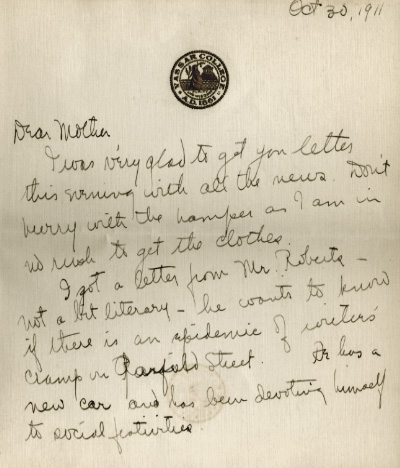 Oct 30, 1911
VASSAR COLLEGE
A.D. 1861
Dear Mother
I was very glad to get you letter
this evening with all the news. Don't
hurry with the hamper as I am in
no rush to get the clothes.
I got a letter from Mr. Roberts –
not a bit literary – he wants to know
if there is an epidemic of writers'
cramp on Garfield Street. He has a
new car and has been devoting himself
to social festivities.